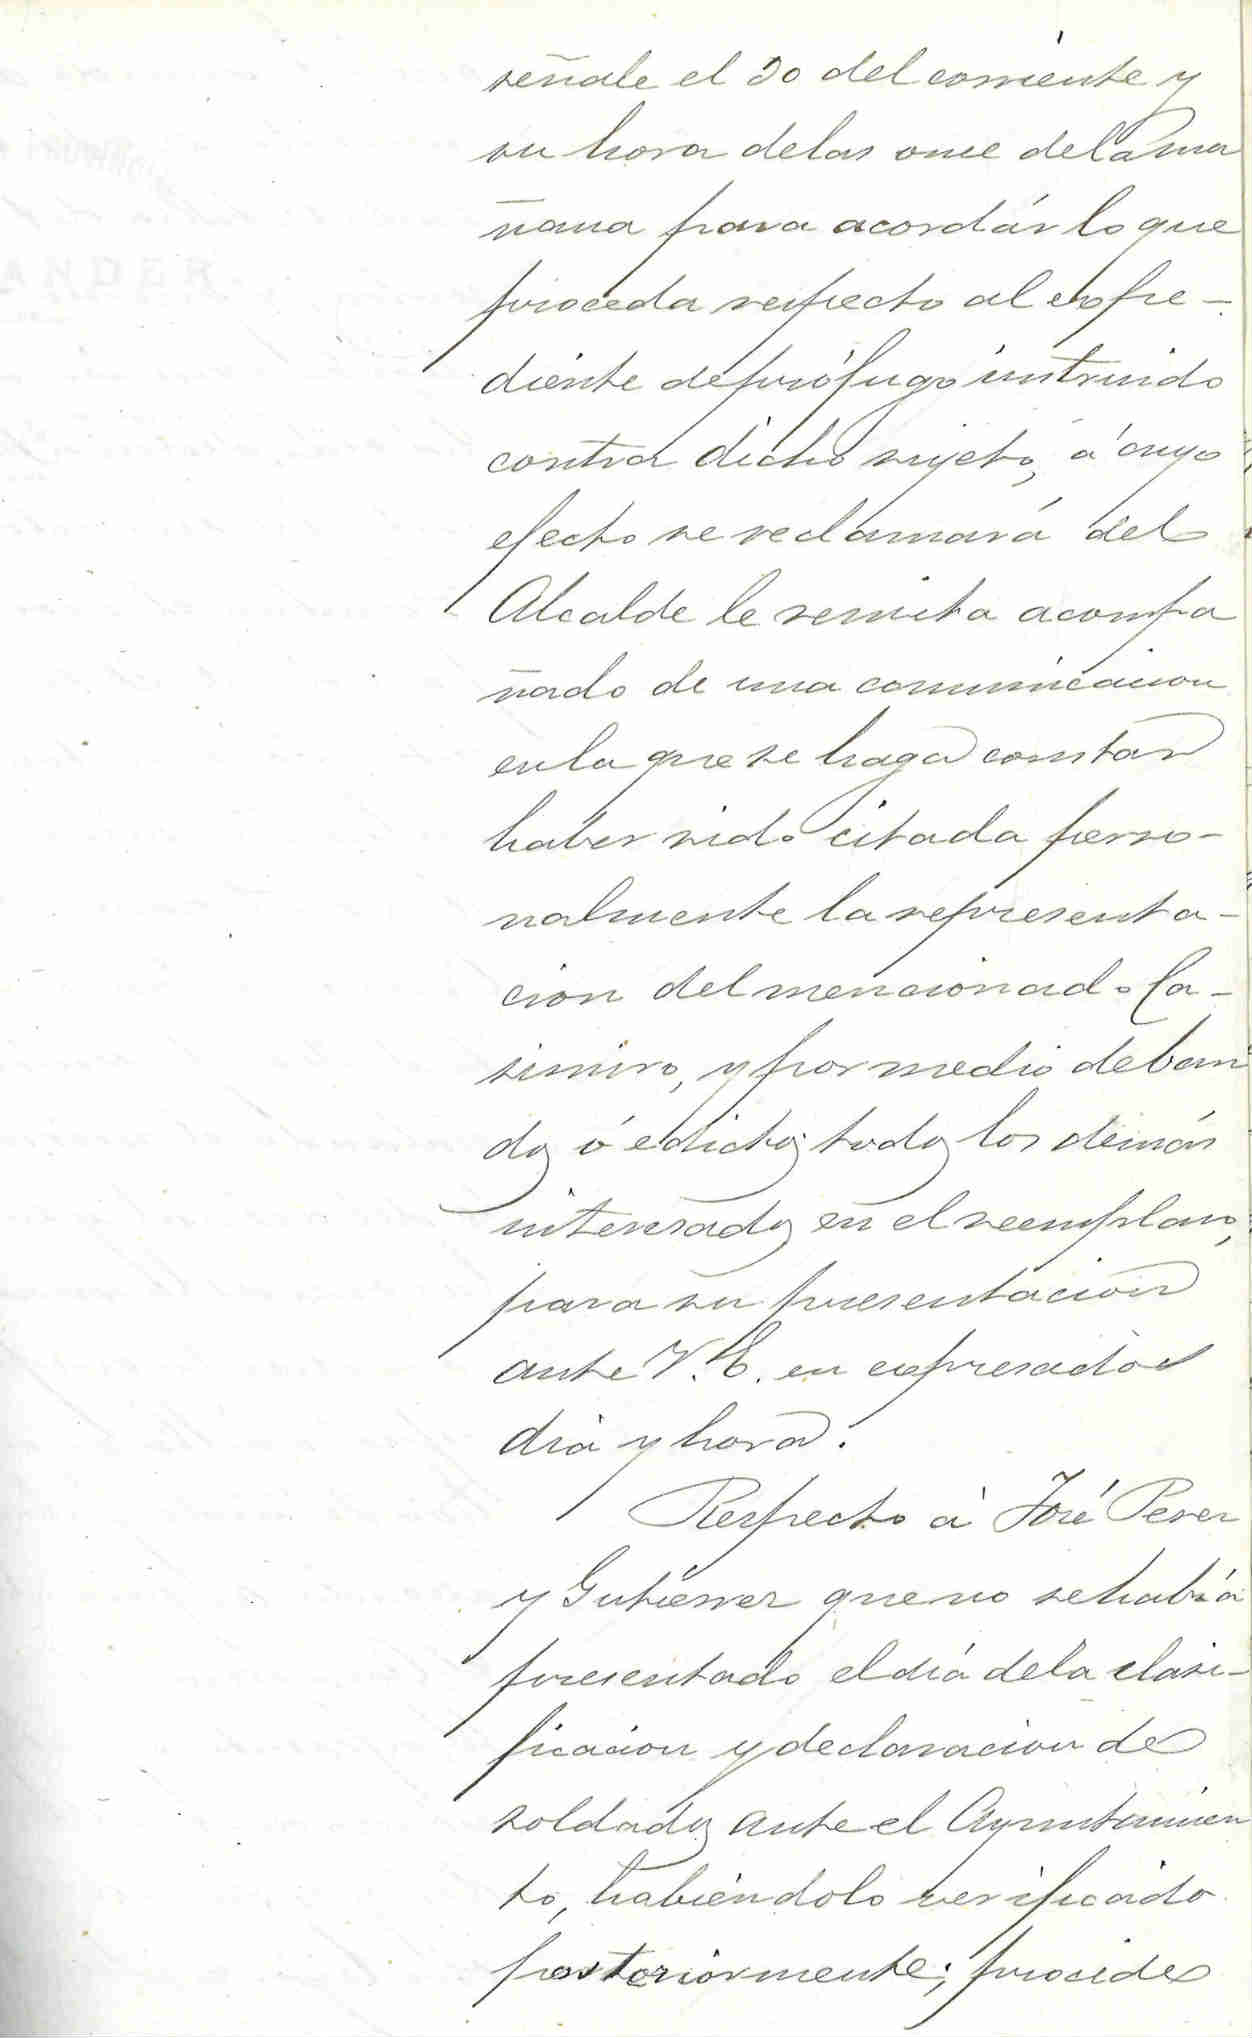 señale el 30 del corriente y
su hora delas once dela ma
ñana para acordár lo que
proceda respecto al expe-
diente de prófugo instruido
contra dicho sujeto, á cuyo
efecto se reclamará del
Alcalde le remita acompa
ñado de una comunicacion
en la que se haga constar
haber sido citada perso-
nalmente la representa-
cion del mencionado Ca-
simiro, y por medio de ban
dos ó edictos todos los demás
interesados en el reemplazo,
para su presentacion
ante V.E. en expresados
dia y hora.
Respecto á José Perez
y Gutierrez que no se habia
presentado el dia de la clasi-
ficacion y declaracion de
soldados ante el Ayuntamien
to, habiéndolo verificado
posteriormente; procede
ANDER